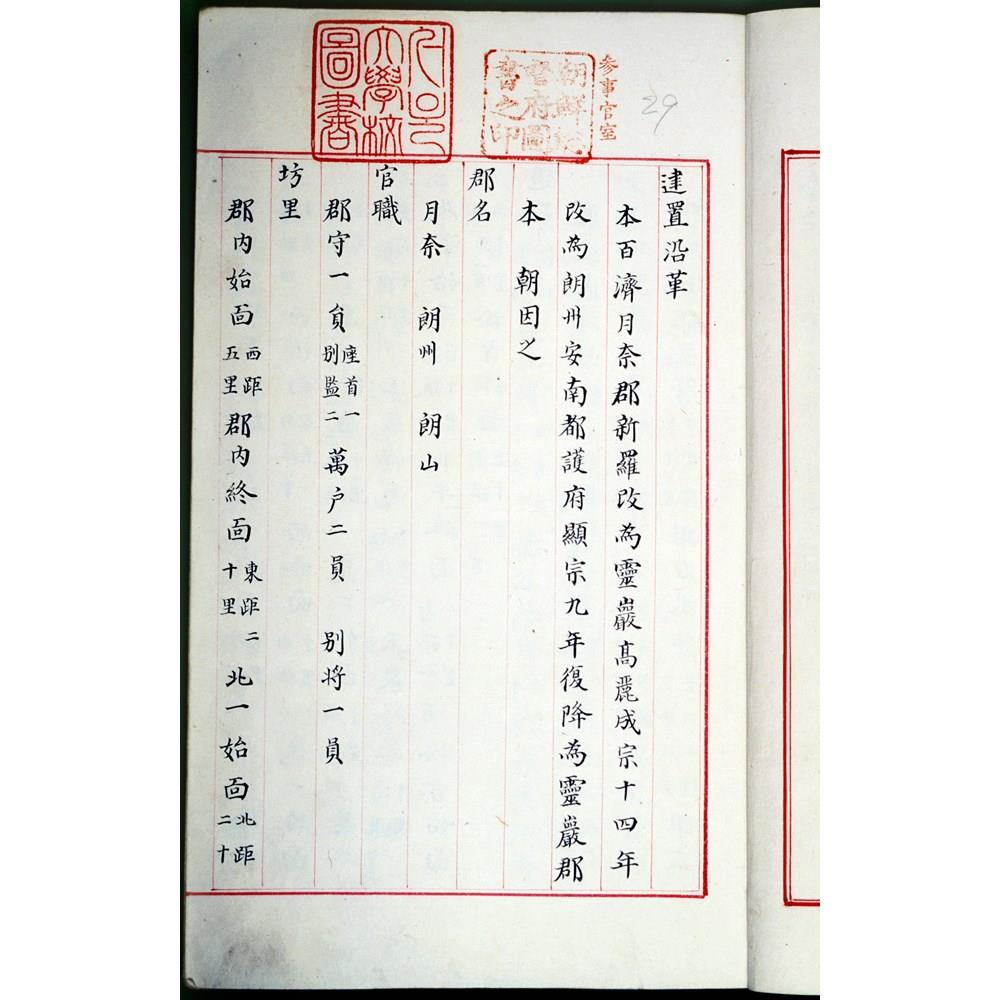 29
參事官室
朝鮮總
督府圖
書之印
서울대
大學校
圖書
建置沿革
本百濟月奈郡新羅改為靈巖高麗成宗十四年
改為朗州安南都護府顯宗九年復降為靈巖郡
本 朝因之
郡名
月奈 朗州 朗山
官職
郡守一員座首一别監二萬户二員 别将一員
坊里
郡内始面西距五里郡内終面東距二十里北一始面北距二十